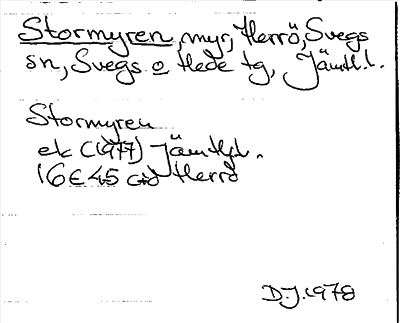 Stormyren, myr, Herrö, Svegs
sn, Svegs o Hede tg, Jämtl.l.
Stormyren
ek (1977) Jämtl.
16E 45 cd Herrö
D.J. 1978